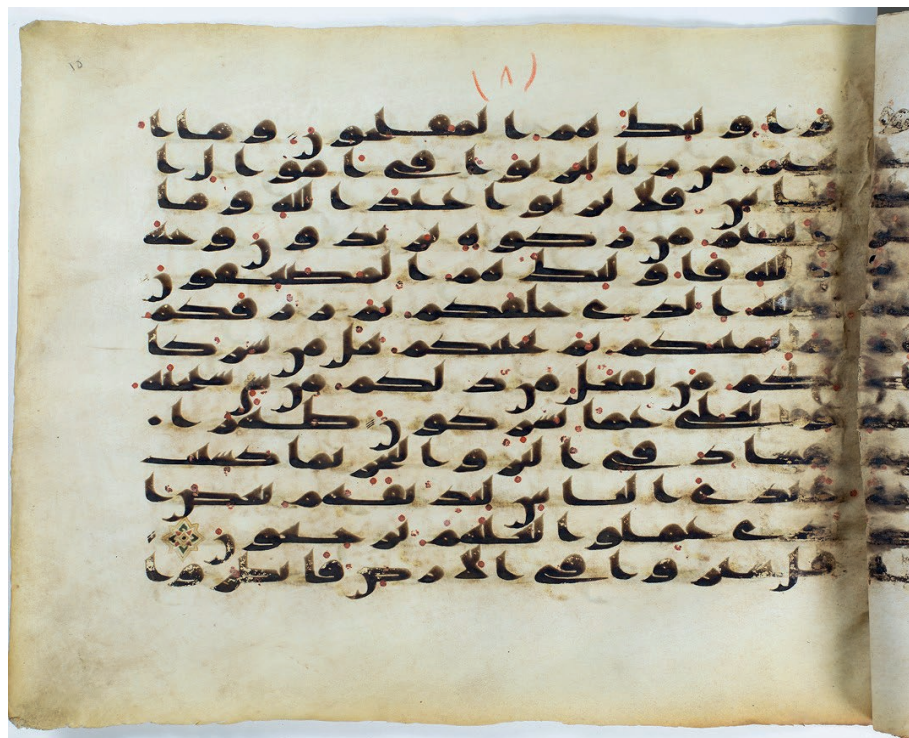 ١٥
(٨)
واولئك هم المفلحون وما ا
تيتم من ربا ليربوا في امول ا
لناس فلا يربوا عند الله وما ا
تيتم من زكوة تريدون وجه
الله فاولئك هم المضعفون
الله الذي خلقكم ثم رزقكم
ثم يميتكم ثم يحييكم هل من شركا
ئكم من يفعل من ذلكم من شي سبحنه
وتعلى عما يشركون ظهر ا
لفساد في البر والبحر بما كسبت
ايدي الناس ليذيقهم بعض ا
لذي عملوا لعلهم يرجعون
قل سيروا في الارض فانظروا